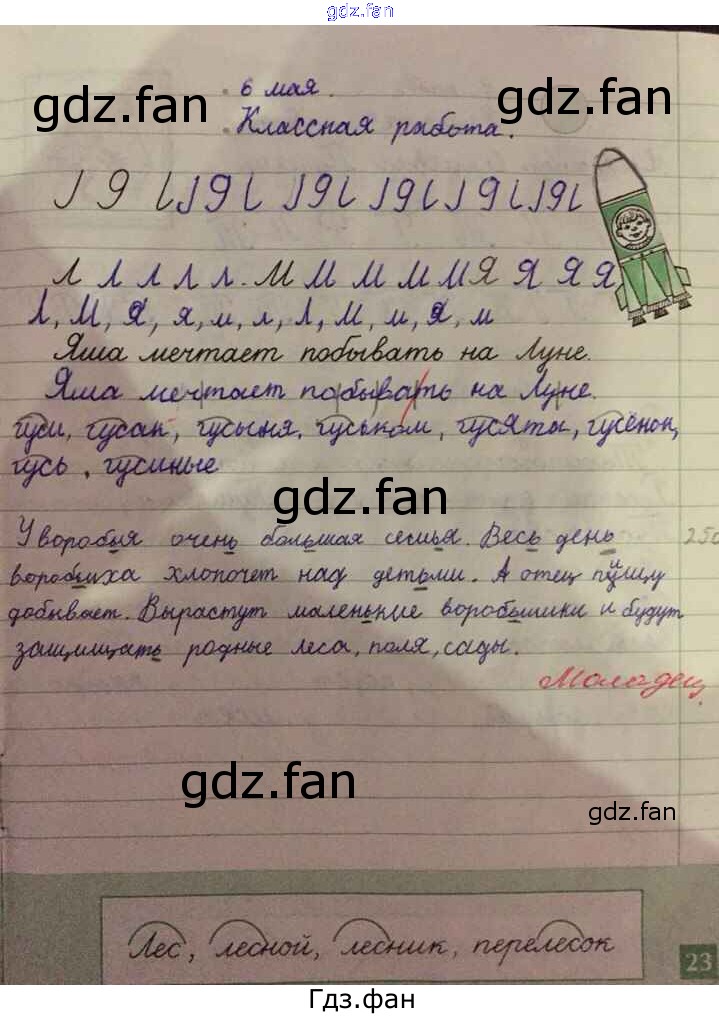 gdz.fan
6 мая.
gdz.fan
gdz.fan
Классная работа.
Л Л Л Л Л. М М М М М Я Я Я Я
Л, М, Я, я, м, л, Л, М, м, Я, м
Яша мечтает побывать на Луне.
Яша мечтает побывать на Луне.
гуси, гусак, гусыня, гуськом, гусята, гусёнок,
гусь, гусиные
gdz.fan
У воробья очень большая семья. Весь день
250
воробьиха хлопочет над детьми. А отец пищу
добывает. Вырастут маленькие воробьишки и будут
защищать родные леса, поля, сады.
Молодец
gdz.fan
gdz.fan
Лес, лесной, лесник, перелесок
23
Гдз.фан